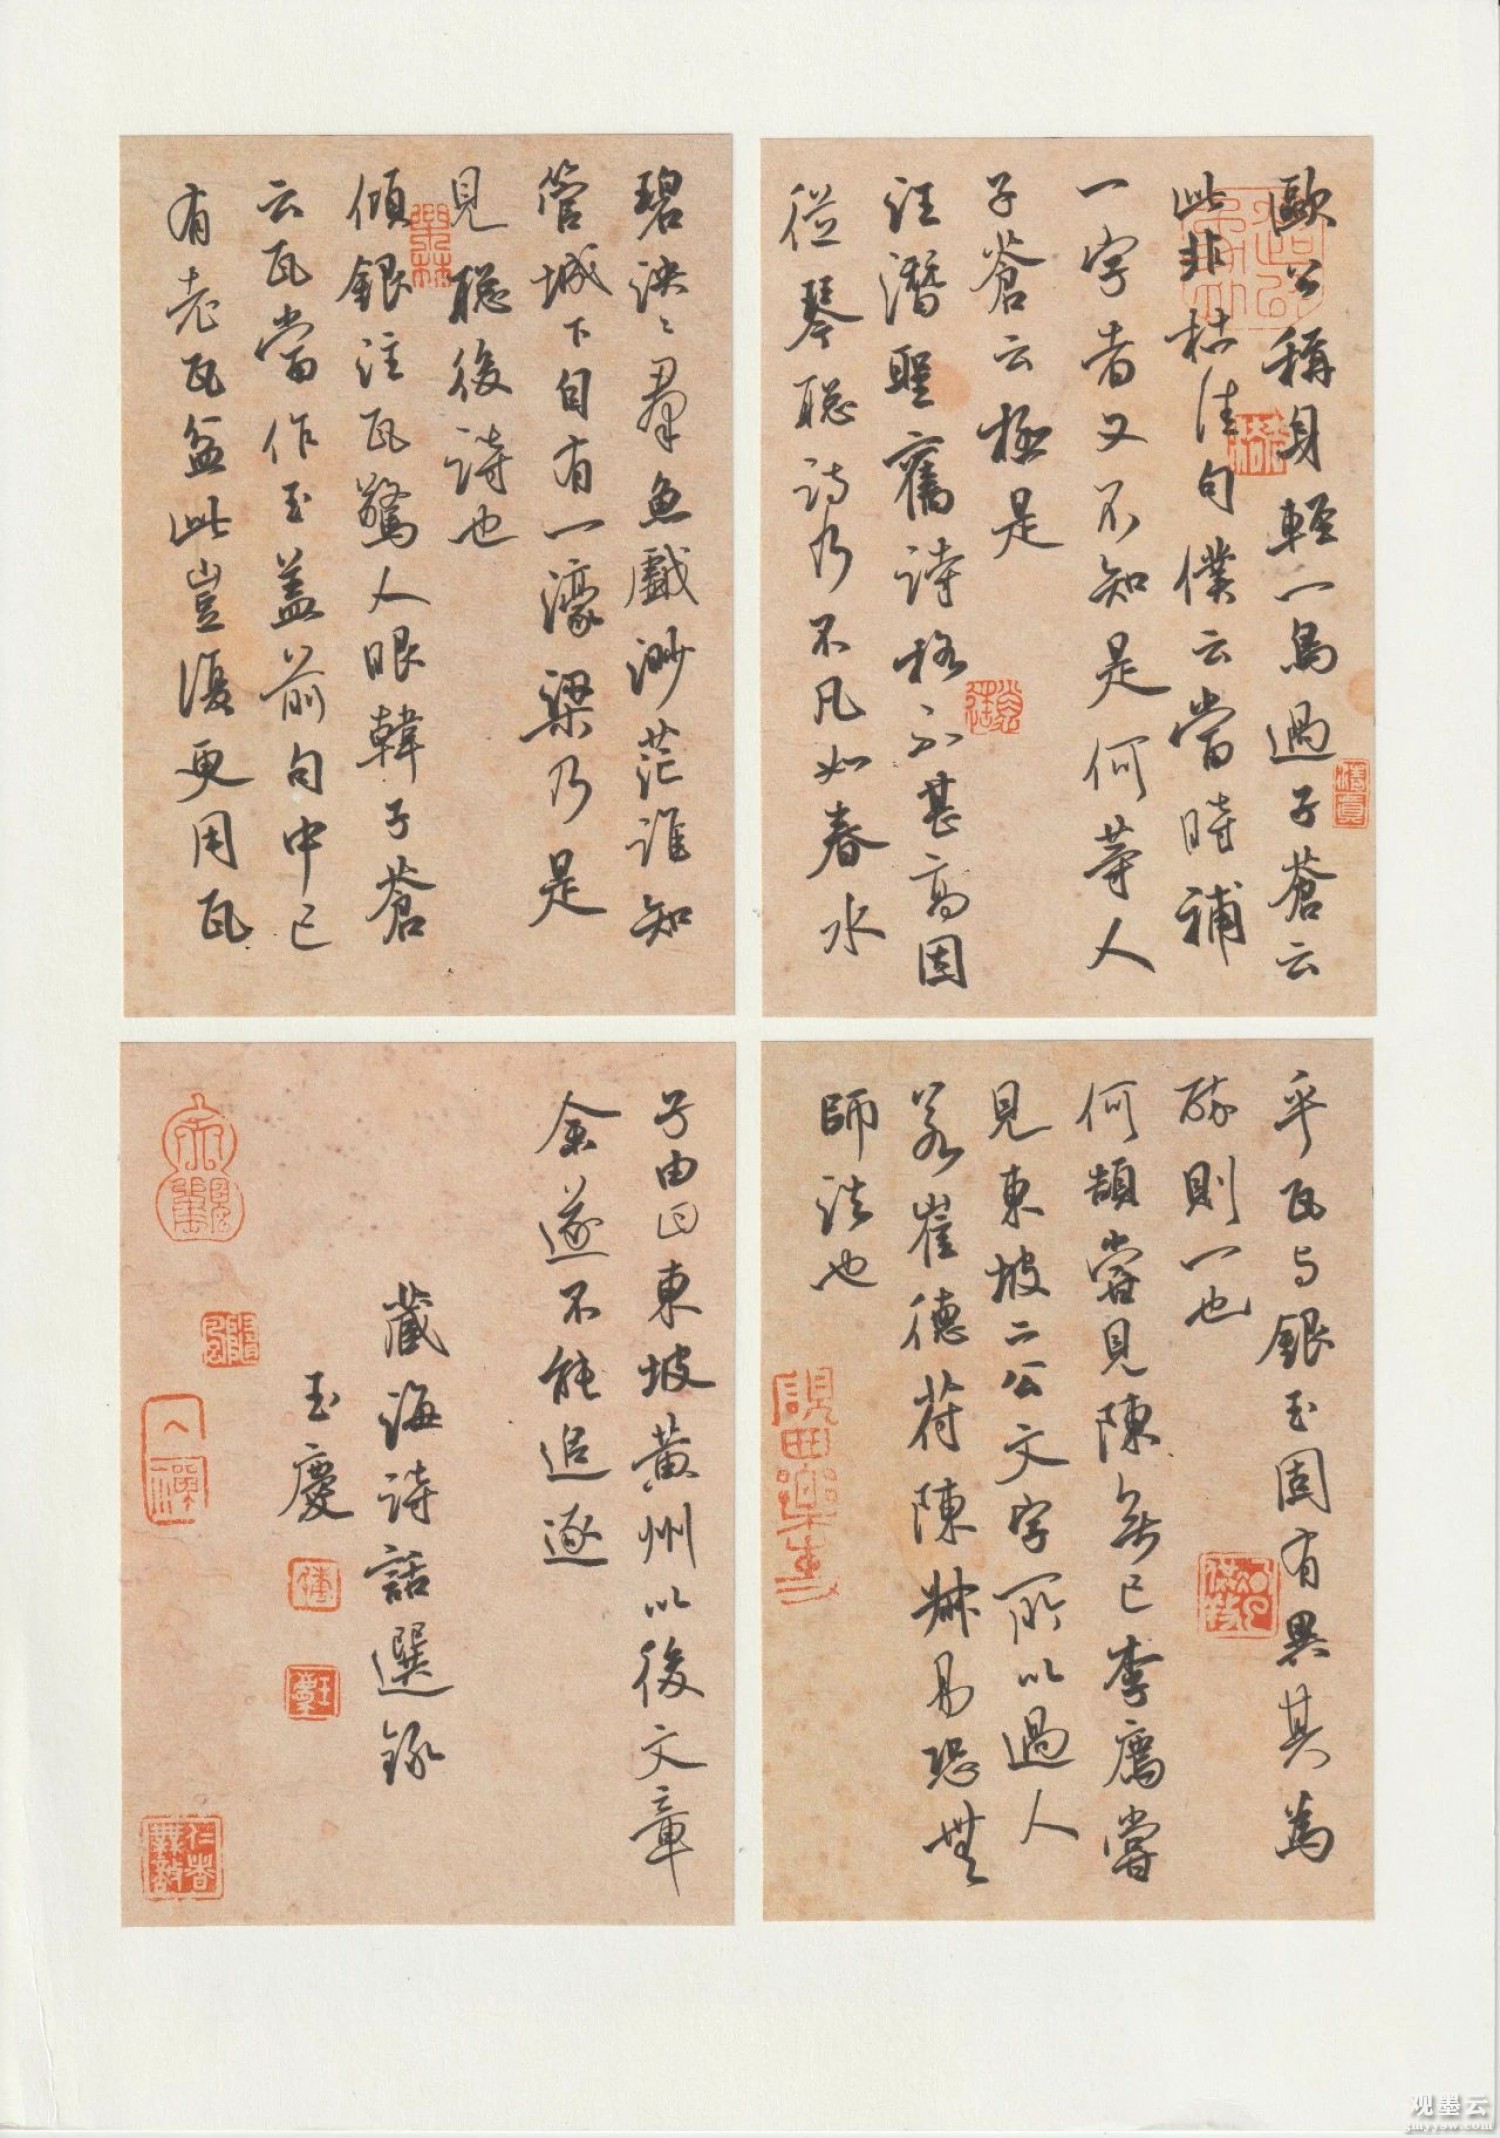 歐公稱身輕一鳥過子蒼云
此非枯佳句僕云當時補
一字者又不知是何等人
子蒼云極是
汪潛聖舊詩格不甚高因
從琴聰詩乃不凡如春水
碧泱〻群魚戲渺茫誰知
管城下自有一濠梁乃是
見聰後詩也
傾銀注瓦驚人眼韓子蒼
云瓦當作玉蓋前句中已
有老瓦盆此豈復更用瓦
乎瓦与銀玉固有異其為
醉則一也
何頡嘗見陳無已李廌嘗
見東坡二公文字所以過人
若崔德符陳叔易恐無
師法也
子由曰東坡黃州以後文章
余遂不能追逐
藏海詩話選錄
玉慶
清真
硯田樂事
仁者無敵
观墨云
gmyysw.com